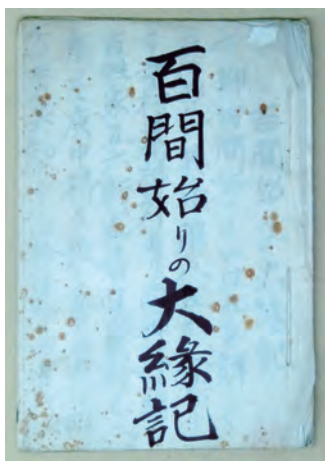 百間始りの大縁記